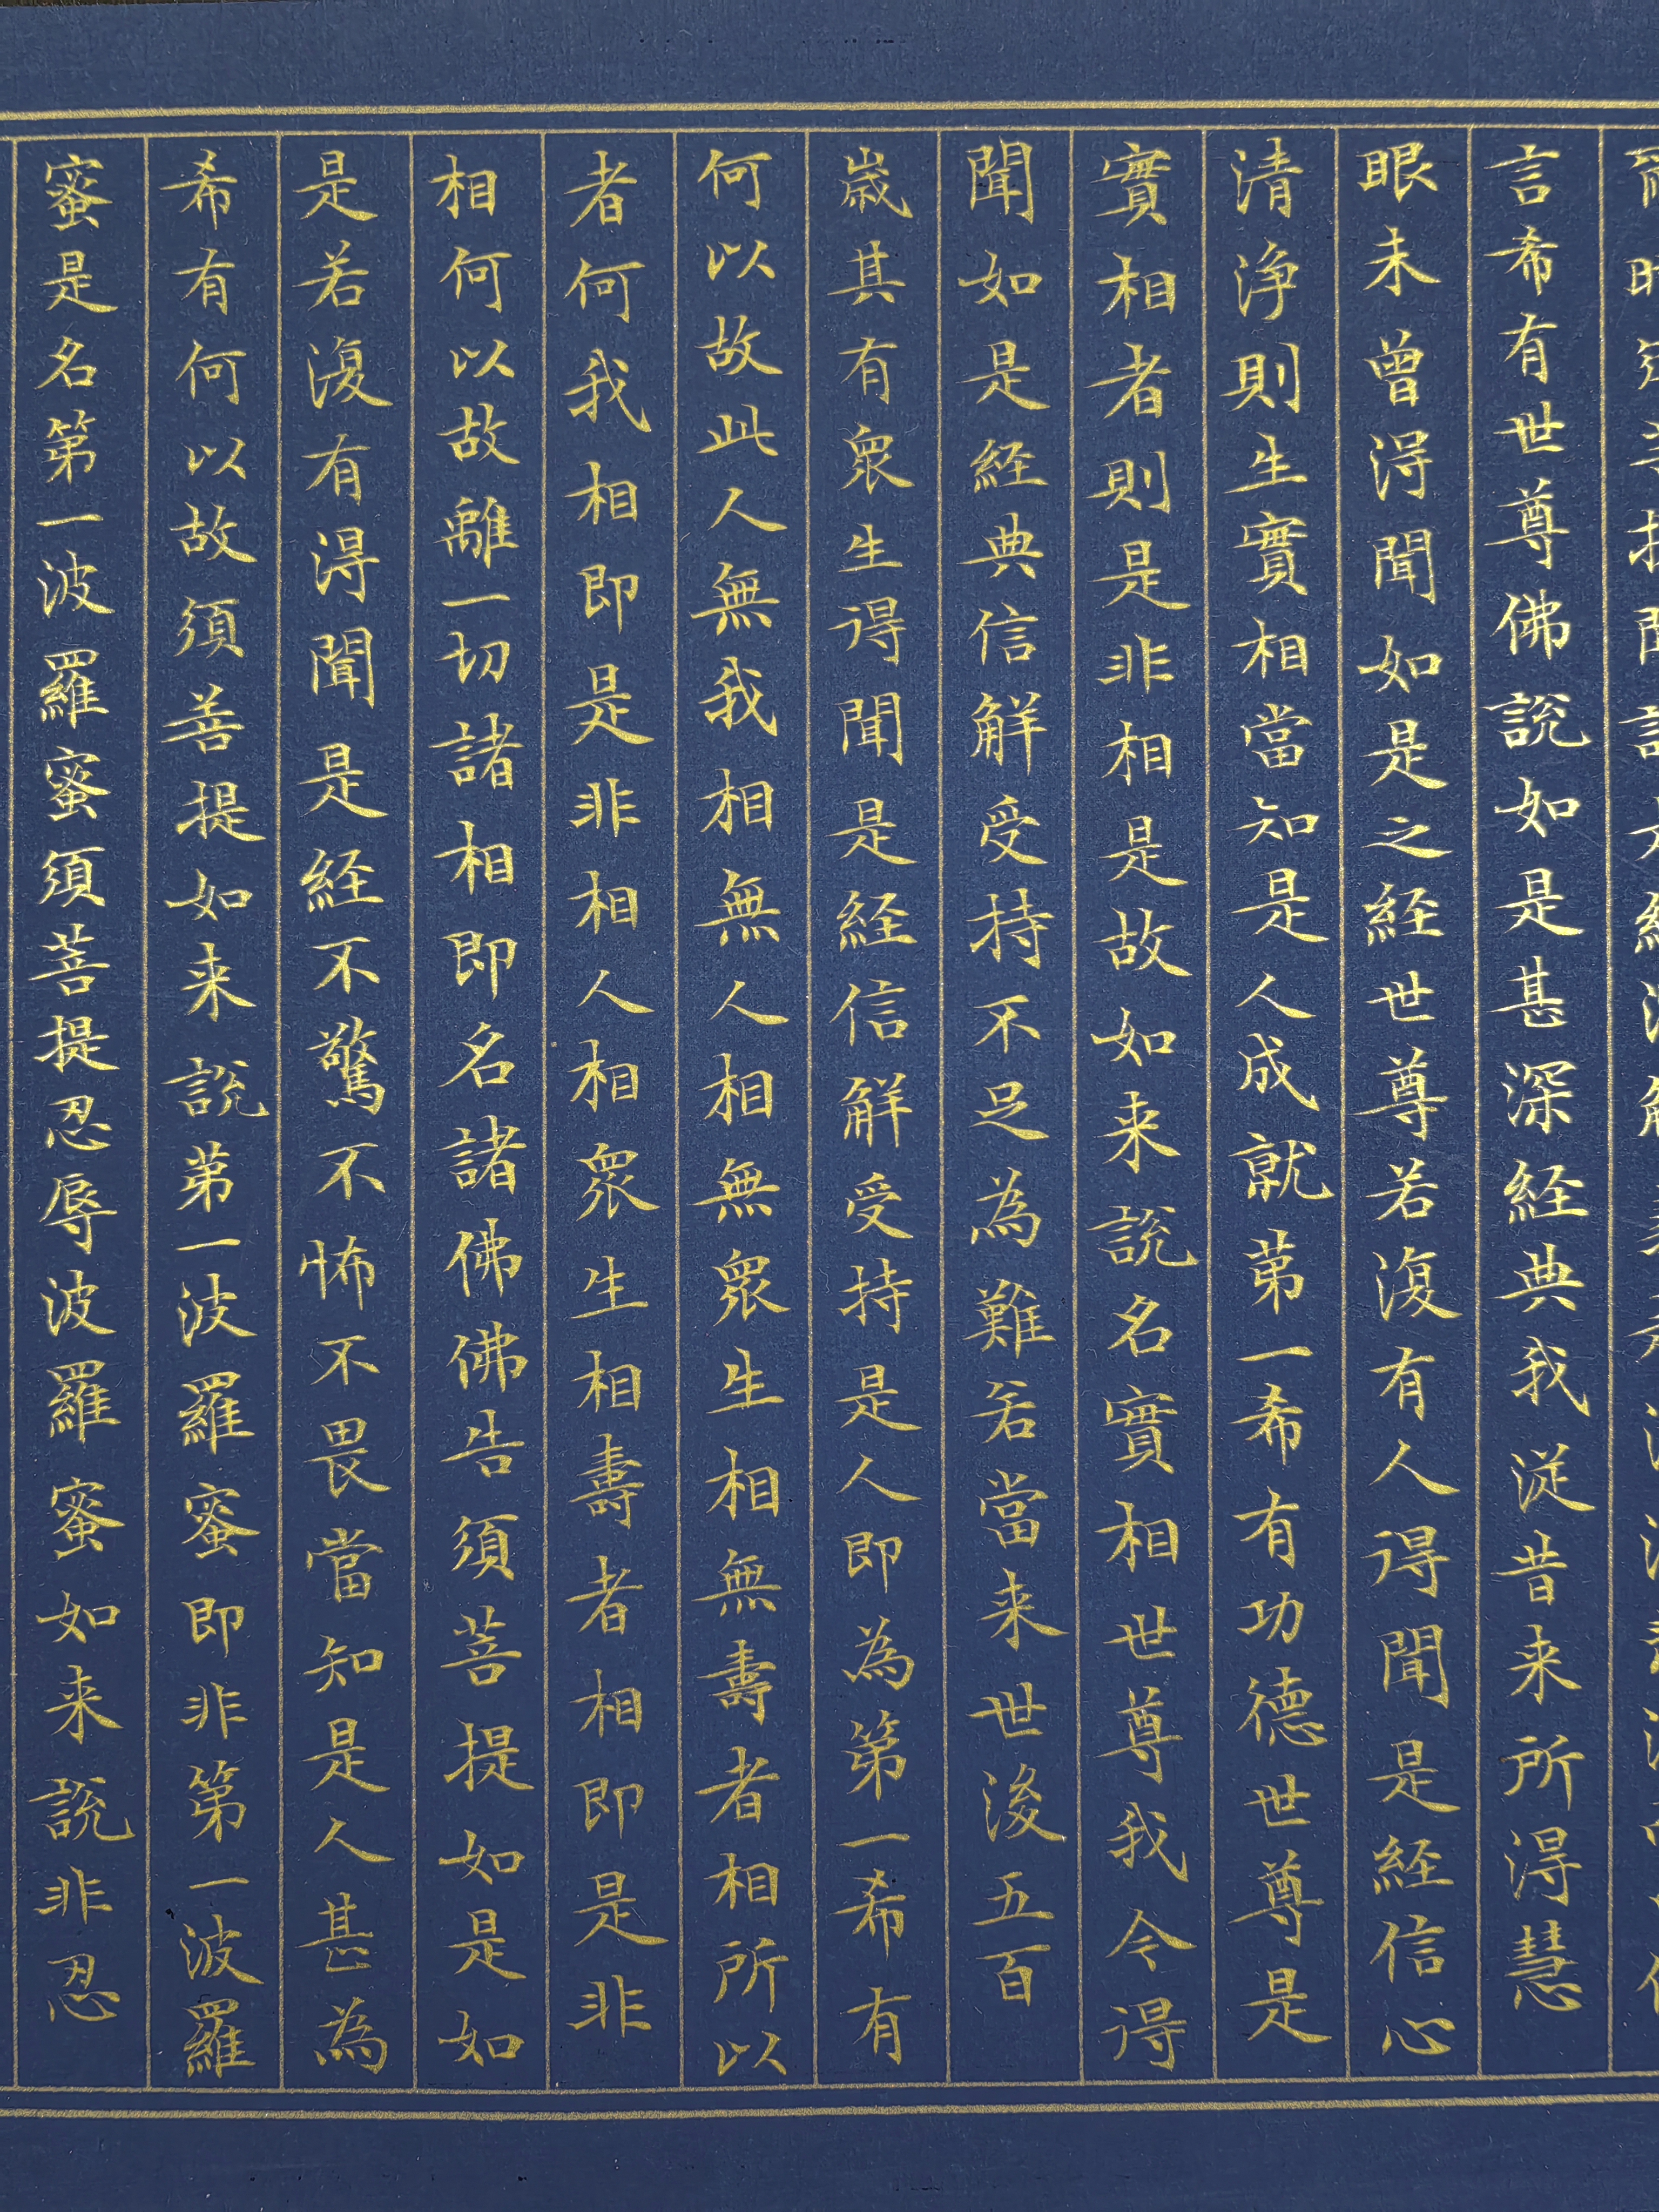 言希有世尊佛說如是甚深経典我從昔来所得慧
眼未曾得聞如是之経世尊若復有人得聞是経信心
清淨則生實相當知是人成就第一希有功德世尊是
實相者則是非相是故如来說名實相世尊我今得
聞如是経典信解受持不足為難若當来世後五百
歳其有衆生得聞是経信解受持是人即為第一希有
何以故此人無我相無人相無衆生相無壽者相所以
者何我相即是非相人相衆生相壽者相即是非
相何以故離一切諸相即名諸佛佛告須菩提如是如
是若復有得聞是経不驚不怖不畏當知是人甚為
希有何以故須菩提如来說第一波羅蜜即非第一波羅
蜜是名第一波羅蜜須菩提忍辱波羅蜜如来說非忍